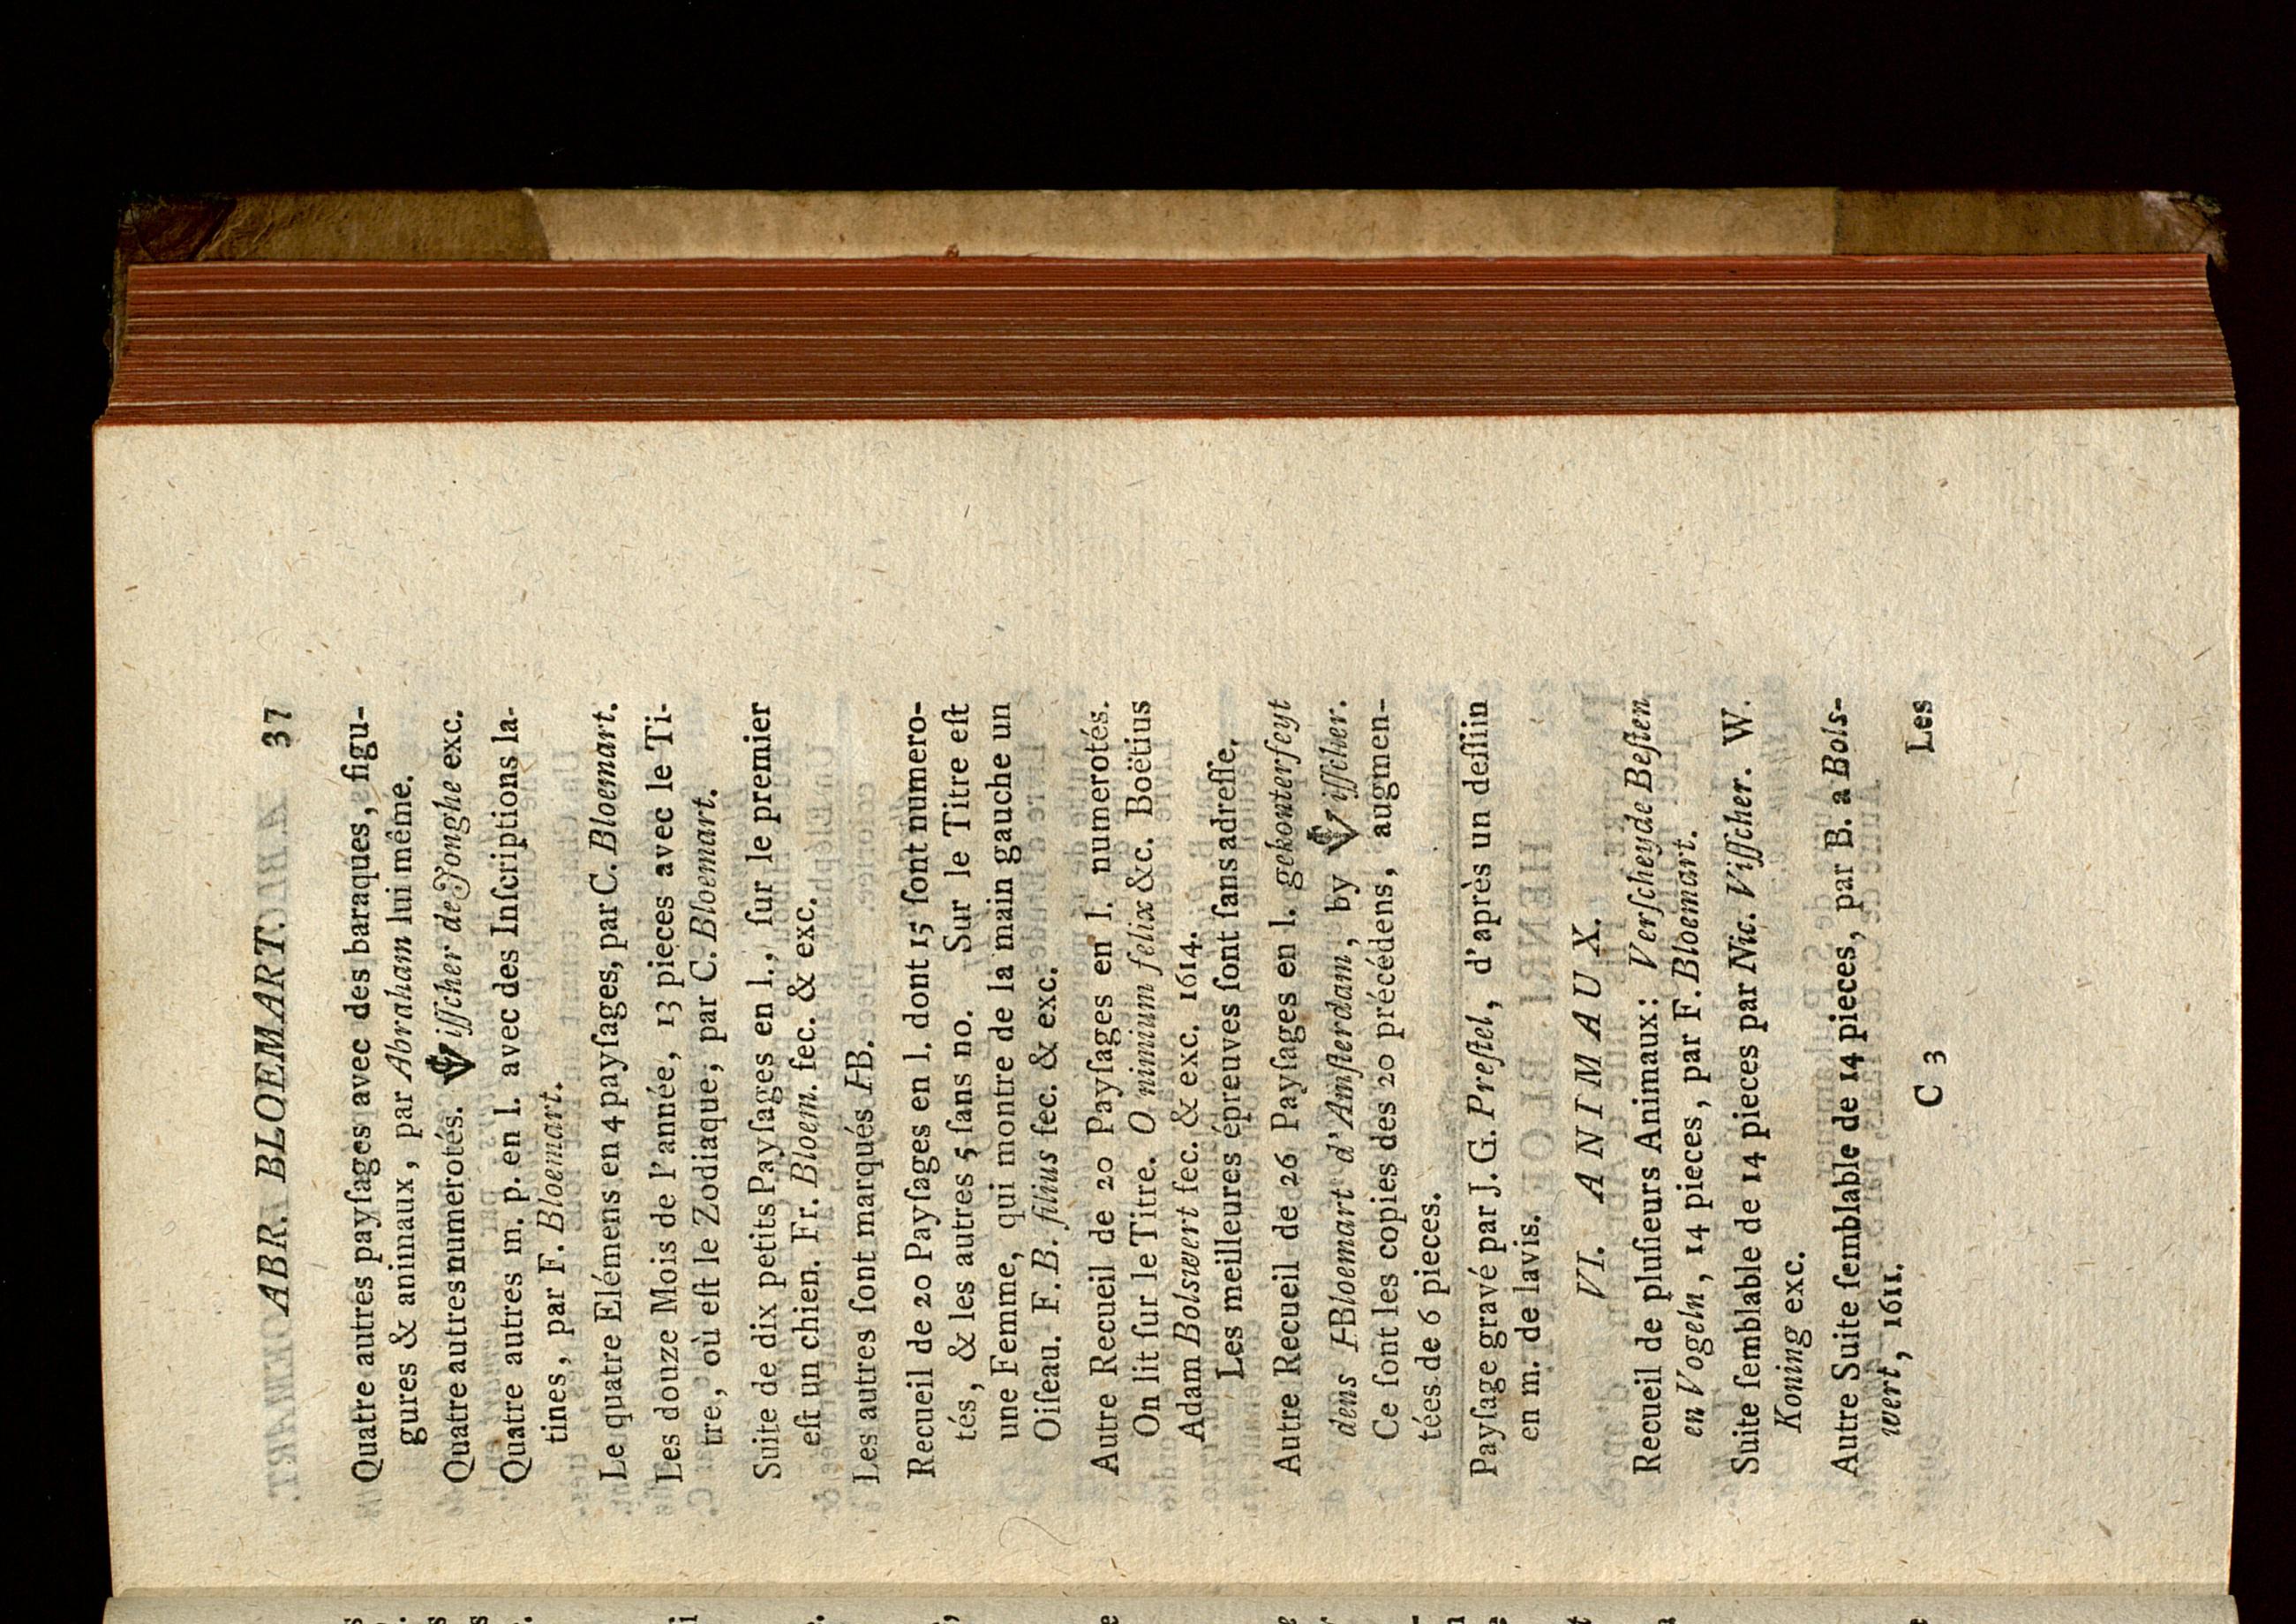 ABR. BLOEMART. 37
Quatre autres payſages avec des baraques, figu-
gures & animaux, par Abraham lui même.
Quatre autres numerotés. Viſſcher de Jonghe exc.
Quatre autres m. p. en l. avec des Inſcriptions la-
tines, par F. Bloemart.
Le quatre Elémens en 4 payſages, par C. Bloemart.
Les douze Mois de l'année, 13 pieces avec le Ti-
tre, où eſt le Zodiaque; par C. Bloemart.
Suite de dix petits Payſages en l., ſur le premier
eſt un chien. Fr. Bloem. fec. & exc.
Les autres ſont marqués AB.
Recueil de 20 Payſages en l. dont 15 ſont numero-
tés, & les autres 5 ſans no. Sur le Titre eſt
une Femme, qui montre de la main gauche un
Oiſeau. F. B. filius fec. & exc.
Autre Recueil de 20 Payſages en l. numerotés.
On lit ſur le Titre. O nimium felix &c. Boëtius
Adam Bolswert fec. & exc. 1614.
Les meilleures épreuves ſont ſans adreſſe.
Autre Recueil de 26 Payſages en l. gekonterfeyt
dens ABloemart d'Amſterdam, by Viſſcher.
Ce ſont les copies des 20 précédens, augmen-
tées de 6 pieces.
Payſage gravé par J. G. Preſtel, d'après un deſſin
en m. de lavis.
VI. ANIMAUX.
Recueil de pluſieurs Animaux: Verſcheyde Beſten
en Vogeln, 14 pieces, par F. Bloemart.
Suite ſemblable de 14 pieces par Nic. Viſſcher. W.
Koning exc.
Autre Suite ſemblable de 14 pieces, par B. a Bols-
wert, 1611.
C 3 Les